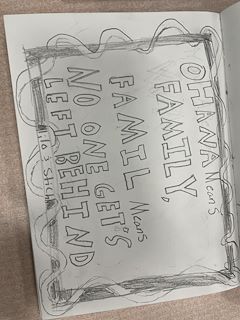 OHANA Means
FAMILY,
FAMIL Means
NO ONE GET'S
LEFT BEHIND